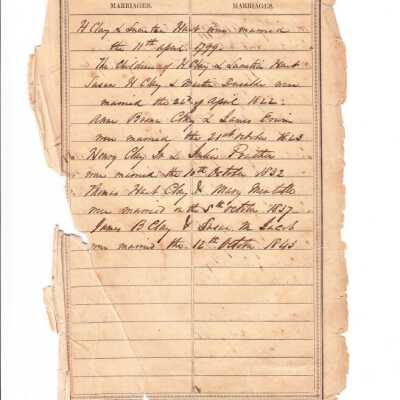 MARRIAGES. MARRIAGES.
H Clay & Lucretia Hart were married
the 11th april 1799.
The Children of H Clay & Lucretia Hart
Susan H Clay & Martin Duralde were
married the 22d of April 1822.
Anne Brown Clay & James Erwin
were married the 21st October 1823
Henry Clay Jr & Julia Prather
were married the 10th October 1832
Thomas Hart Clay & Mary Mentelle
were married on the 5th October 1837.
James B Clay & Susan M Jacob
were married the 12th October 1843